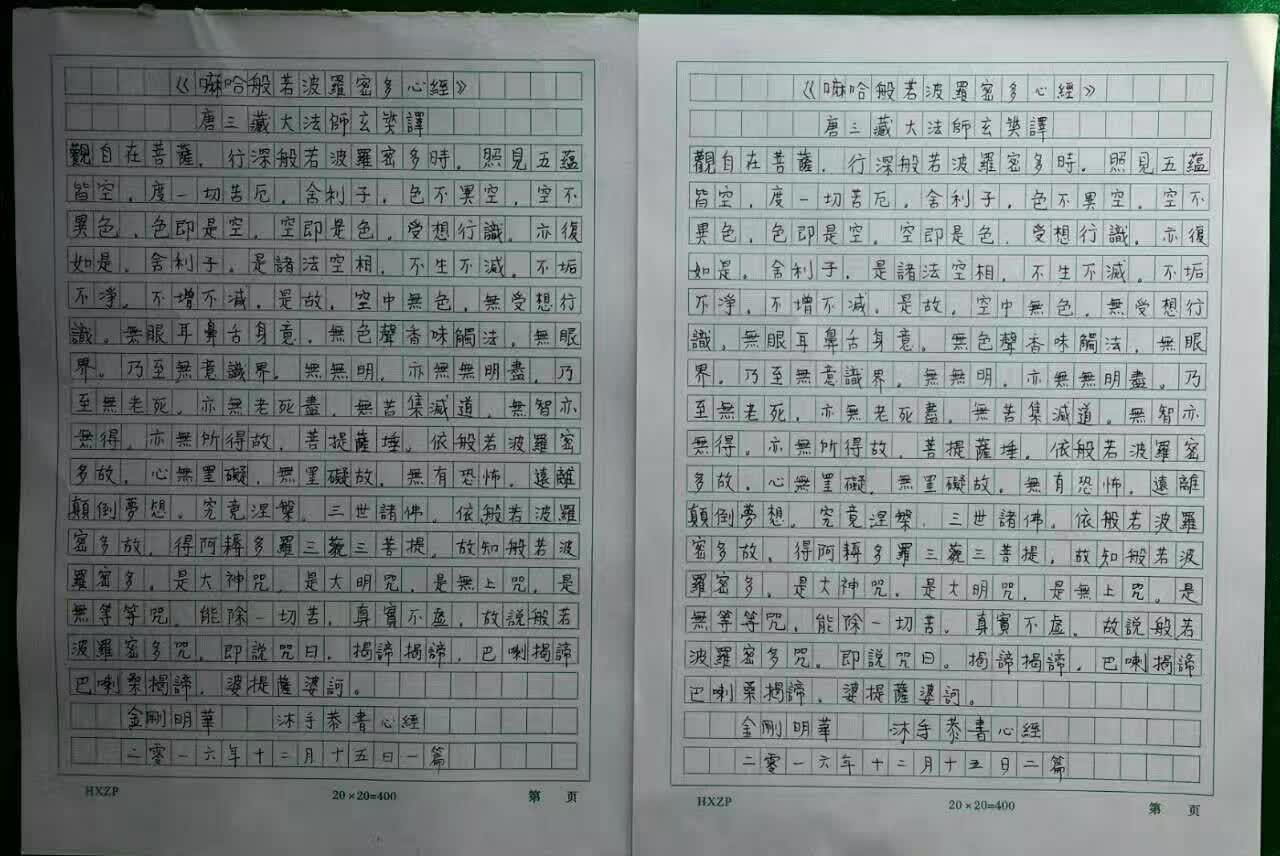 《嘛哈般若波羅密多心經》
唐三藏大法師玄奘譯
觀自在菩薩．行深般若波羅密多時．照見五蘊
皆空．度一切苦厄．舍利子．色不異空．空不
異色．色即是空．空即是色．受想行識．亦復
如是．舍利子．是諸法空相．不生不滅．不垢
不淨．不增不減．是故．空中無色．無受想行
識．無眼耳鼻舌身意．無色聲香味觸法．無眼
界．乃至無意識界．無無明．亦無無明盡．乃
至無老死．亦無老死盡．無苦集滅道．無智亦
無得．亦無所得故．菩提薩埵．依般若波羅密
多故．心無罣礙．無罣礙故．無有恐怖．遠離
顛倒夢想．究竟涅槃．三世諸佛．依般若波羅
密多故．得阿耨多羅三藐三菩提．故知般若波
羅密多．是大神咒．是大明咒．是無上咒．是
無等等咒．能除一切苦．真實不虛．故説般若
波羅密多咒．即説咒曰．揭諦揭諦．巴喇揭諦
巴喇桑揭諦．婆提薩婆訶。
金剛明華 沐手恭書心經
二零一六年十二月十五日一篇
HXZP 20×20=400 第 页
《嘛哈般若波羅密多心經》
唐三藏大法師玄奘譯
觀自在菩薩．行深般若波羅密多時．照見五蘊
皆空．度一切苦厄．舍利子．色不異空．空不
異色．色即是空．空即是色．受想行識．亦復
如是．舍利子．是諸法空相．不生不滅．不垢
不淨．不增不減．是故．空中無色．無受想行
識．無眼耳鼻舌身意．無色聲香味觸法．無眼
界．乃至無意識界．無無明．亦無無明盡．乃
至無老死．亦無老死盡．無苦集滅道．無智亦
無得．亦無所得故．菩提薩埵．依般若波羅密
多故．心無罣礙．無罣礙故．無有恐怖．遠離
顛倒夢想．究竟涅槃．三世諸佛．依般若波羅
密多故．得阿耨多羅三藐三菩提．故知般若波
羅密多．是大神咒．是大明咒．是無上咒．是
無等等咒．能除一切苦．真實不虛．故説般若
波羅密多咒．即説咒曰．揭諦揭諦．巴喇揭諦
巴喇桑揭諦．婆提薩婆訶。
金剛明華 沐手恭書心經
二零一六年十二月十五日二篇
HXZP 20×20=400 第 页